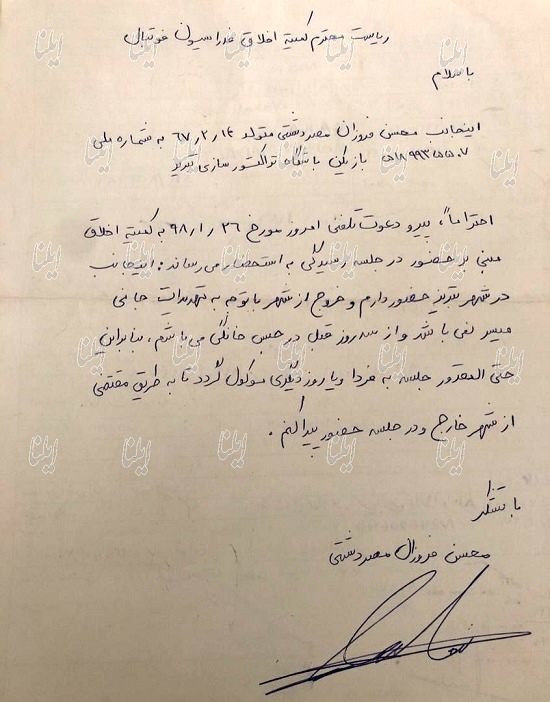 ریاست محترم کمیته اخلاق فدراسیون فوتبال
با سلام
اینجانب محسن فروزان مصردشتی متولد ۶۷٫۲٫۱۴ به شماره ملی
بازیکن باشگاه تراکتورسازی تبریز
احتراماً، پیرو دعوت تلفنی امروز مورخ ۹۸٫۱٫۲۶ به کمیته اخلاق
مبنی بر حضور در جلسه رسیدگی به استحضار می رساند: اینجانب
در شهر تبریز حضور دارم و خروج از شهر با توجه به تهدیدات جانی
میسر نمی باشد و از سه روز قبل در حبس خانگی می باشم، بنابراین
حتی المقدور جلسه به فردا و یا روز دیگری موکول گردد تا به طریق مقتضی
از شهر خارج و در جلسه حضور پیدا کنم.
با تشکر
محسن فروزان مصردشتی
ایلنا